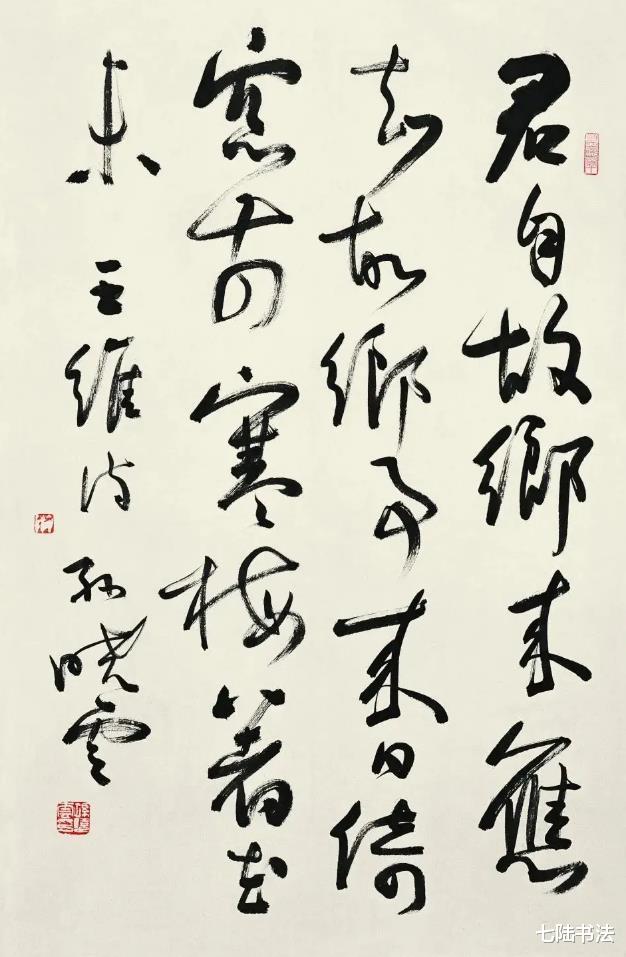 君自故鄉来應
知故鄉事来日倚
窓前寒梅著花
未 王維诗 孙晓雲
七陆书法